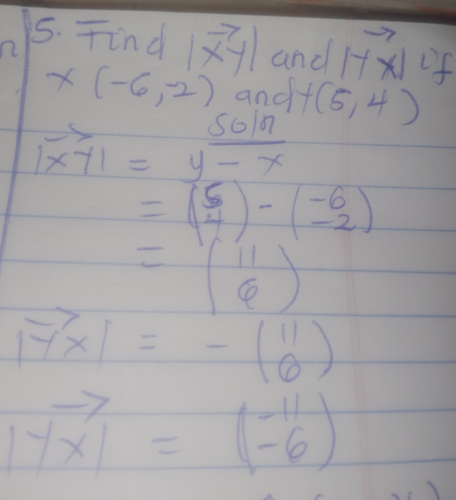 5. Find |XY| and |YX| if
X (-6,-2) and Y(5,4)
Soln
|XY| = y - x
= (5 4) - (-6 -2)
= (11 6)
|YX| = - (11 6)
|YX| = (-11 -6)